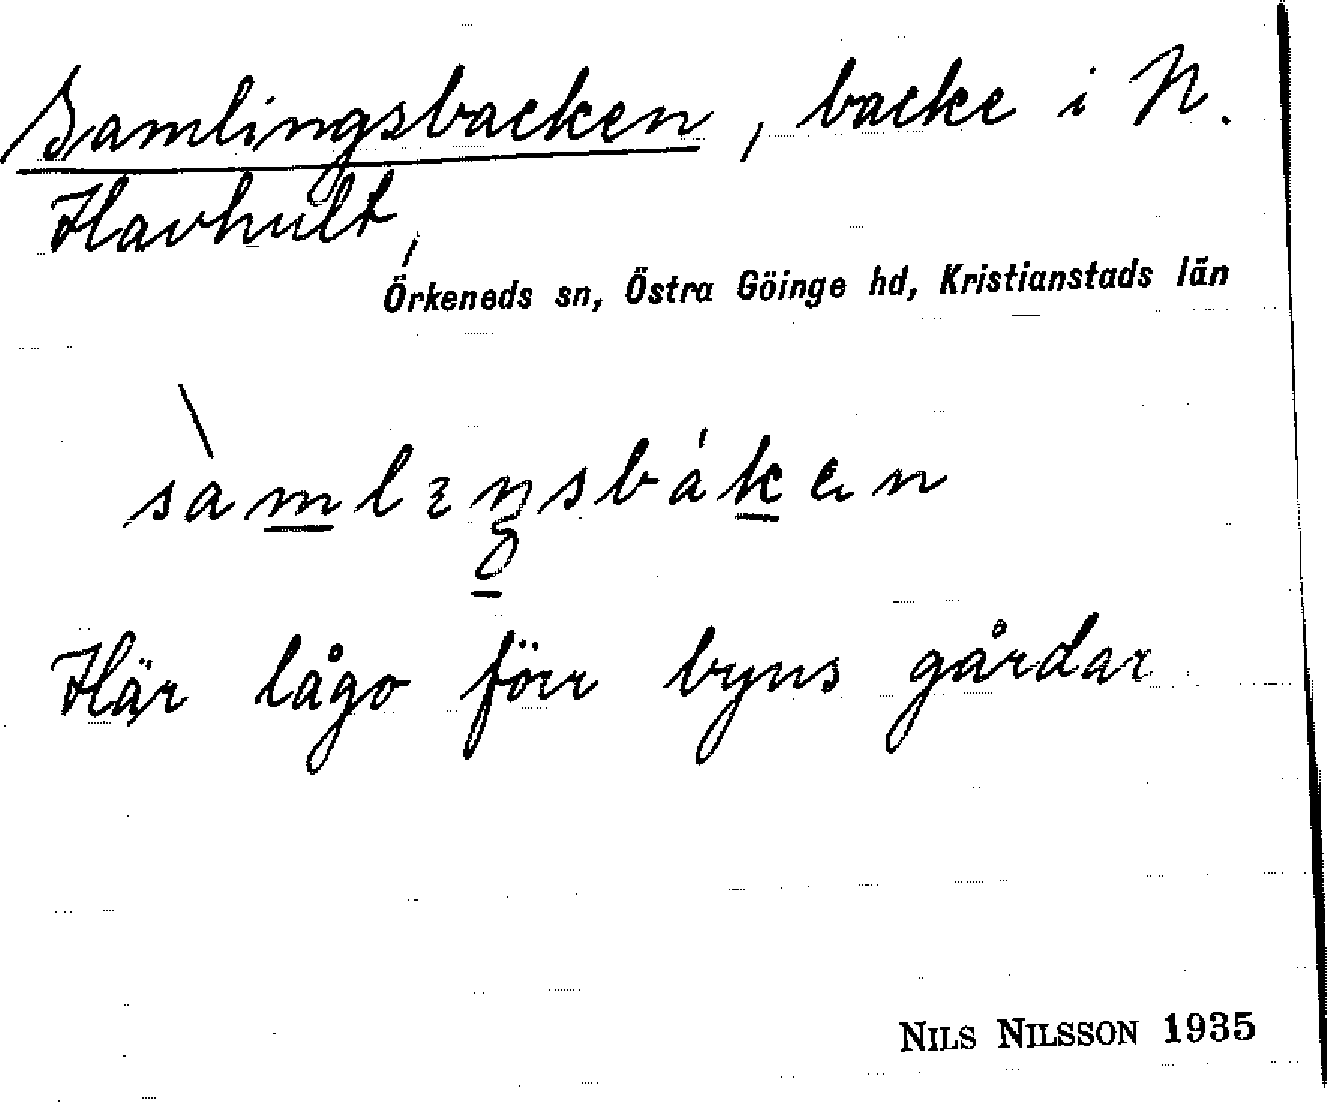 Samlingsbacken, backe i N.
Havhult,
Örkeneds sn, Östra Göinge hd, Kristianstads län
Här lågo förr byns gårdar
NILS NILSSON 1935